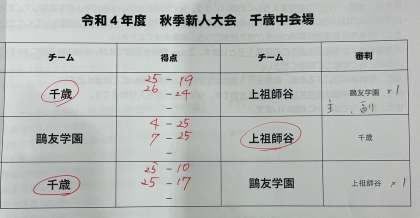 令和４年度　秋季新人大会　千歳中会場
チーム　得点　チーム　審判
25 - 19
千歳　26 - 24　上祖師谷　鷗友学園 × 1
-　主、副
4 - 25
鷗友学園　7 - 25　上祖師谷　千歳
-
25 - 10
千歳　25 - 17　鷗友学園　上祖師谷 × 1
-